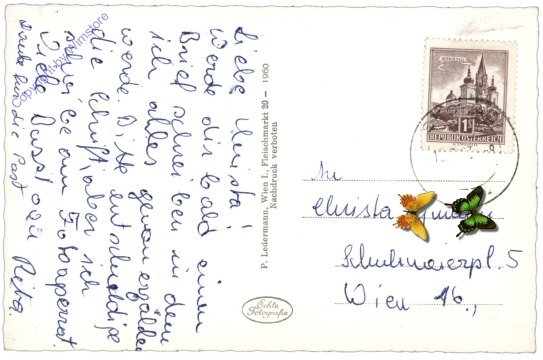 Liebe Christa!
Werde dir bald einen
Brief schreiben in dem
ich alles genau erzählen
werde. Bitte entschuldige
die Schrift, aber ich
schreibe am Fotoapperat.
Viele Bussi von Rita.
Danke für die Post
Copyright by wimstore
P. Ledermann, Wien I., Fleischmarkt 20 — 1960
Nachdruck verboten
Echte
Fotografie
REPUBLIK ÖSTERREICH
An
Christa
Schuhmeierpl. 5
Wien 16.,